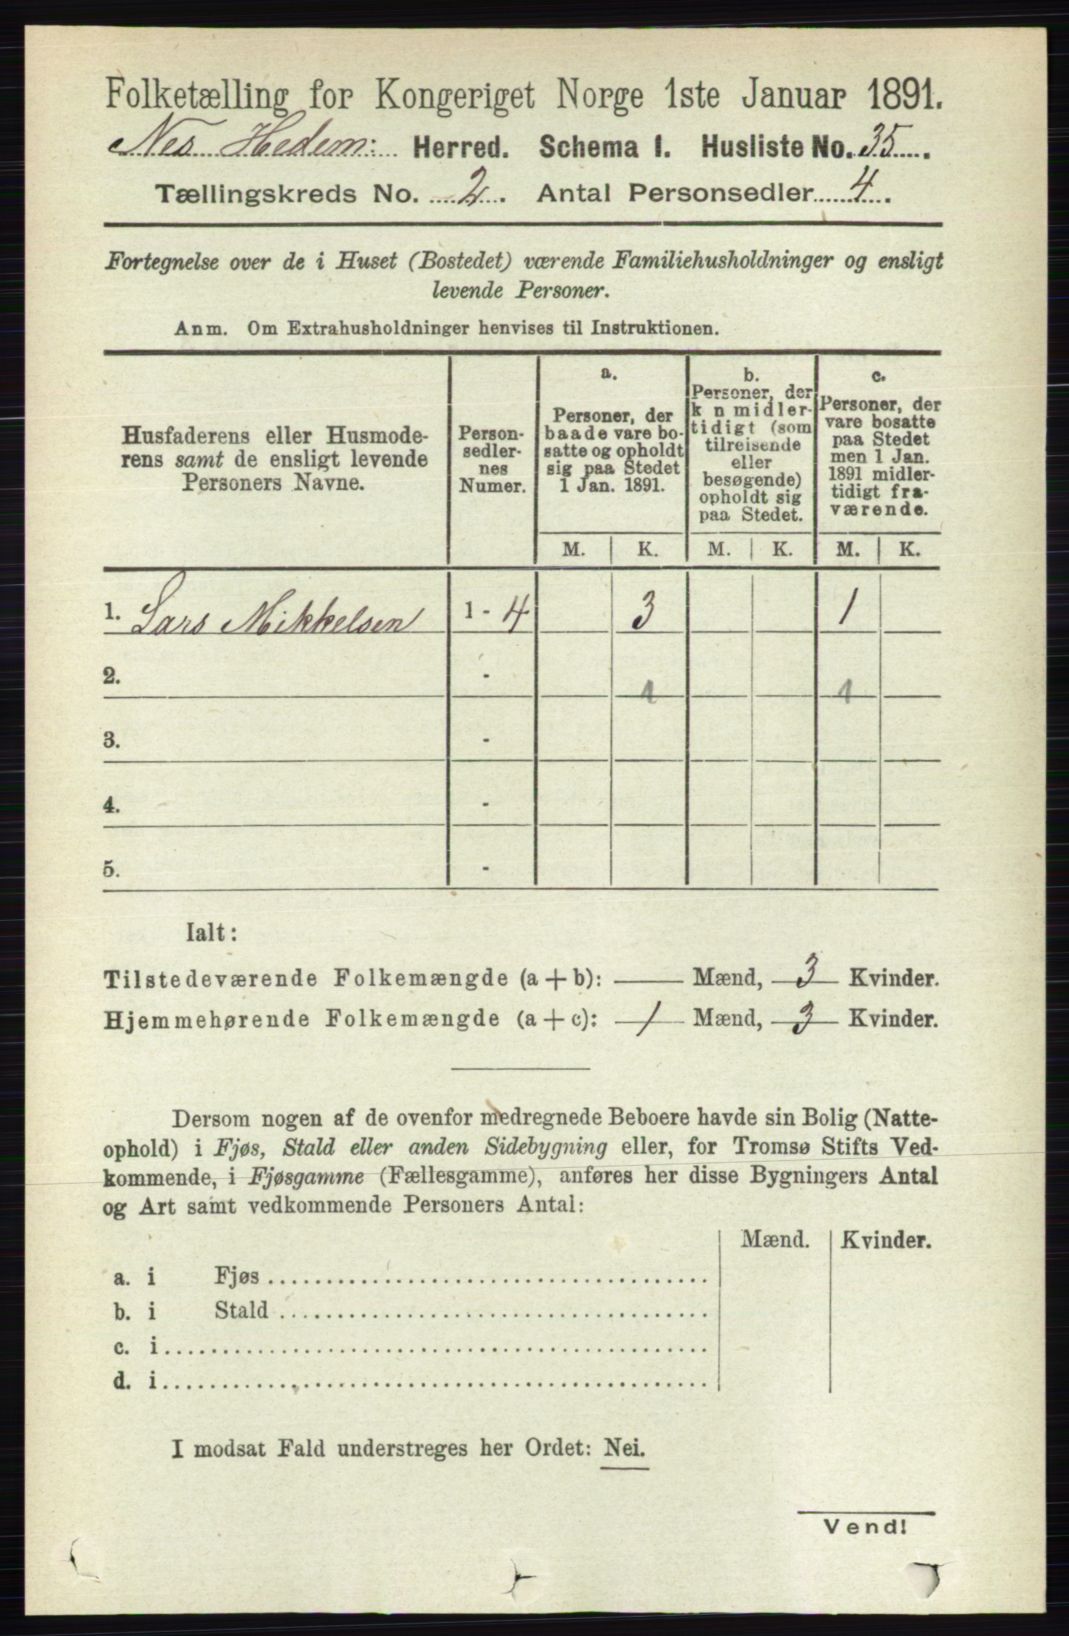 Folketælling for Kongeriget Norge 1ste Januar 1891.
Nes Hedem: Herred. Schema I. Husliste No. 35.
Tællingskreds No. 2. Antal Personsedler 4.
Fortegnelse over de i Huset (Bostedet) værende Familiehusholdninger og ensligt
levende Personer.
Anm. Om Extrahusholdninger henvises til Instruktionen.
Husfaderens eller Husmode-
rens samt de ensligt levende
Personers Navne.
Person-
sedler-
nes
Numer.
a.
Personer, der
baade vare bo-
satte og opholdt
sig paa Stedet
1 Jan. 1891.
b.
Personer, der
k n midler-
tidigt (som
tilreisende
eller
besøgende)
opholdt sig
paa Stedet.
c.
Personer, der
vare bosatte
paa Stedet
men 1 Jan.
1891 midler-
tidigt fra-
værende.
M. K. M. K. M. K.
1. Lars Mikkelsen 1 - 4 3 1
2. -
1 1
3. -
4. -
5. -
Ialt:
Tilstedeværende Folkemængde (a + b): — Mænd, 3 Kvinder.
Hjemmehørende Folkemængde (a + c): 1 Mænd, 3 Kvinder.
Dersom nogen af de ovenfor medregnede Beboere havde sin Bolig (Natte-
ophold) i Fjøs, Stald eller anden Sidebygning eller, for Tromsø Stifts Ved-
kommende, i Fjøsgamme (Fællesgamme), anføres her disse Bygningers Antal
og Art samt vedkommende Personers Antal:
Mænd. Kvinder.
a. i Fjøs
b. i Stald
c. i
d. i
I modsat Fald understreges her Ordet: Nei.
Vend!